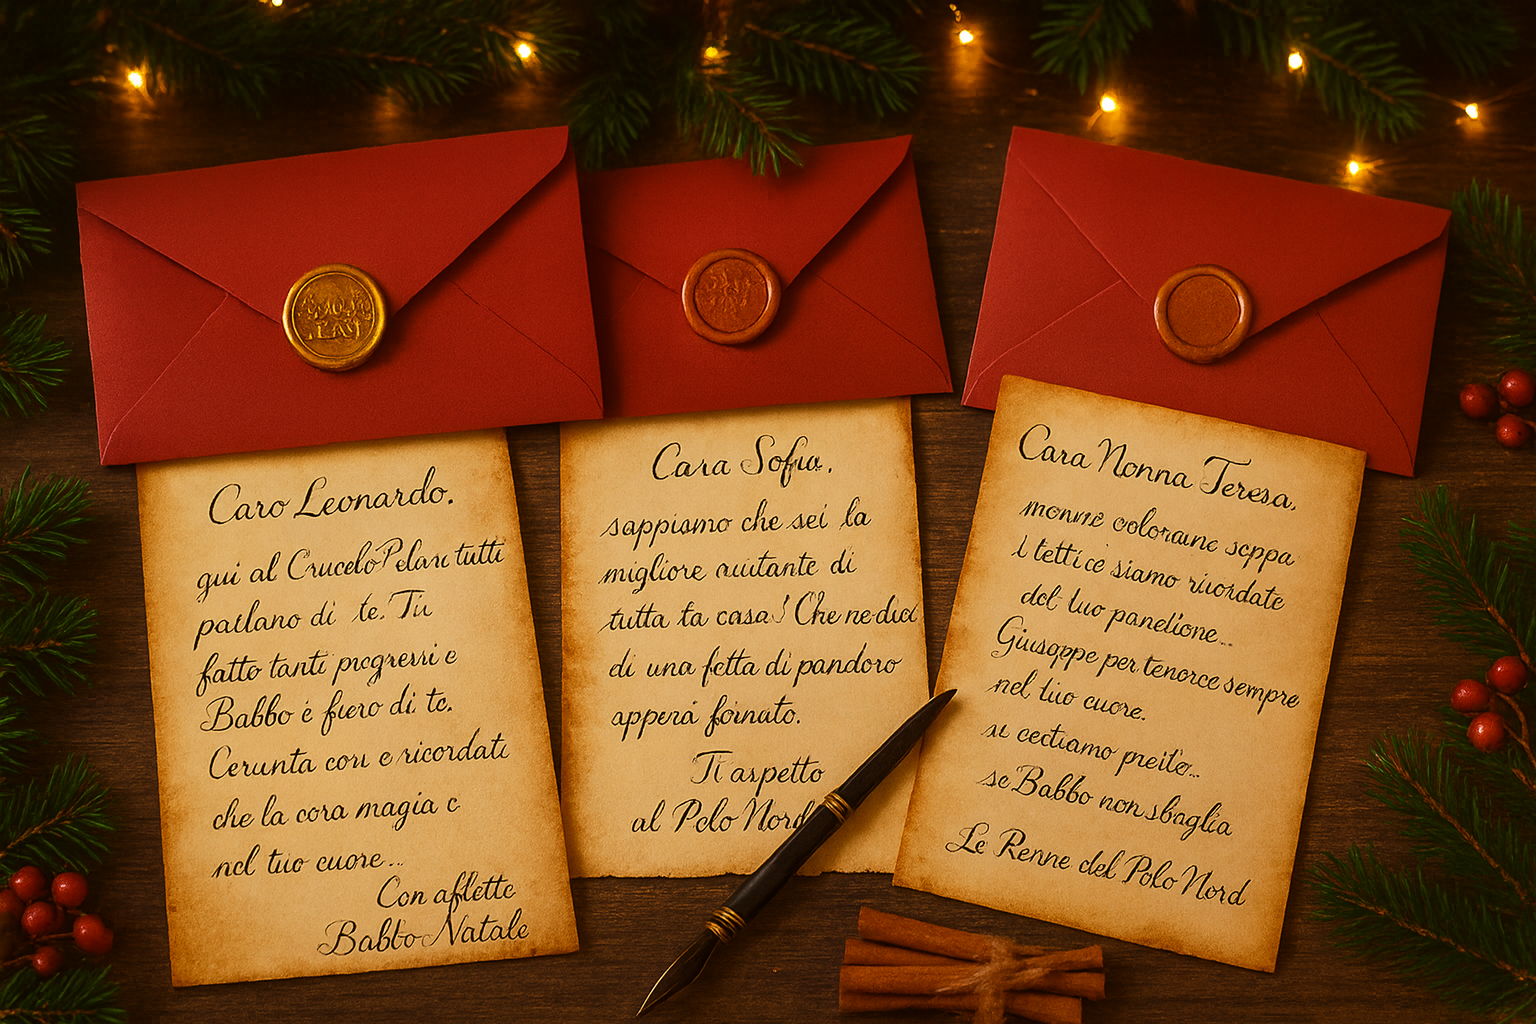 Caro Leonardo.
qui al Crucelo Pelare tutti
parlano di te. Tu
fatto tanti progressi e
Babbo è fiero di te.
Cerunta con e ricordati
che la cora magia c
nel tuo cuore...
Con affette
Babbo Natale
Cara Sofia.
sappiamo che sei la
migliore auitante di
tutta la casa! Che ne dici
di una fetta di pandoro
appena fornato.
Ti aspetto
al Polo Nord
Cara Nonna Teresa,
coloraine seppa
i tetti ce siamo ricordate
del tuo panelione...
Giuseppe per tenorce sempre
nel tuo cuore.
se Babbo non sbaglia
Le Renne del Polo Nord